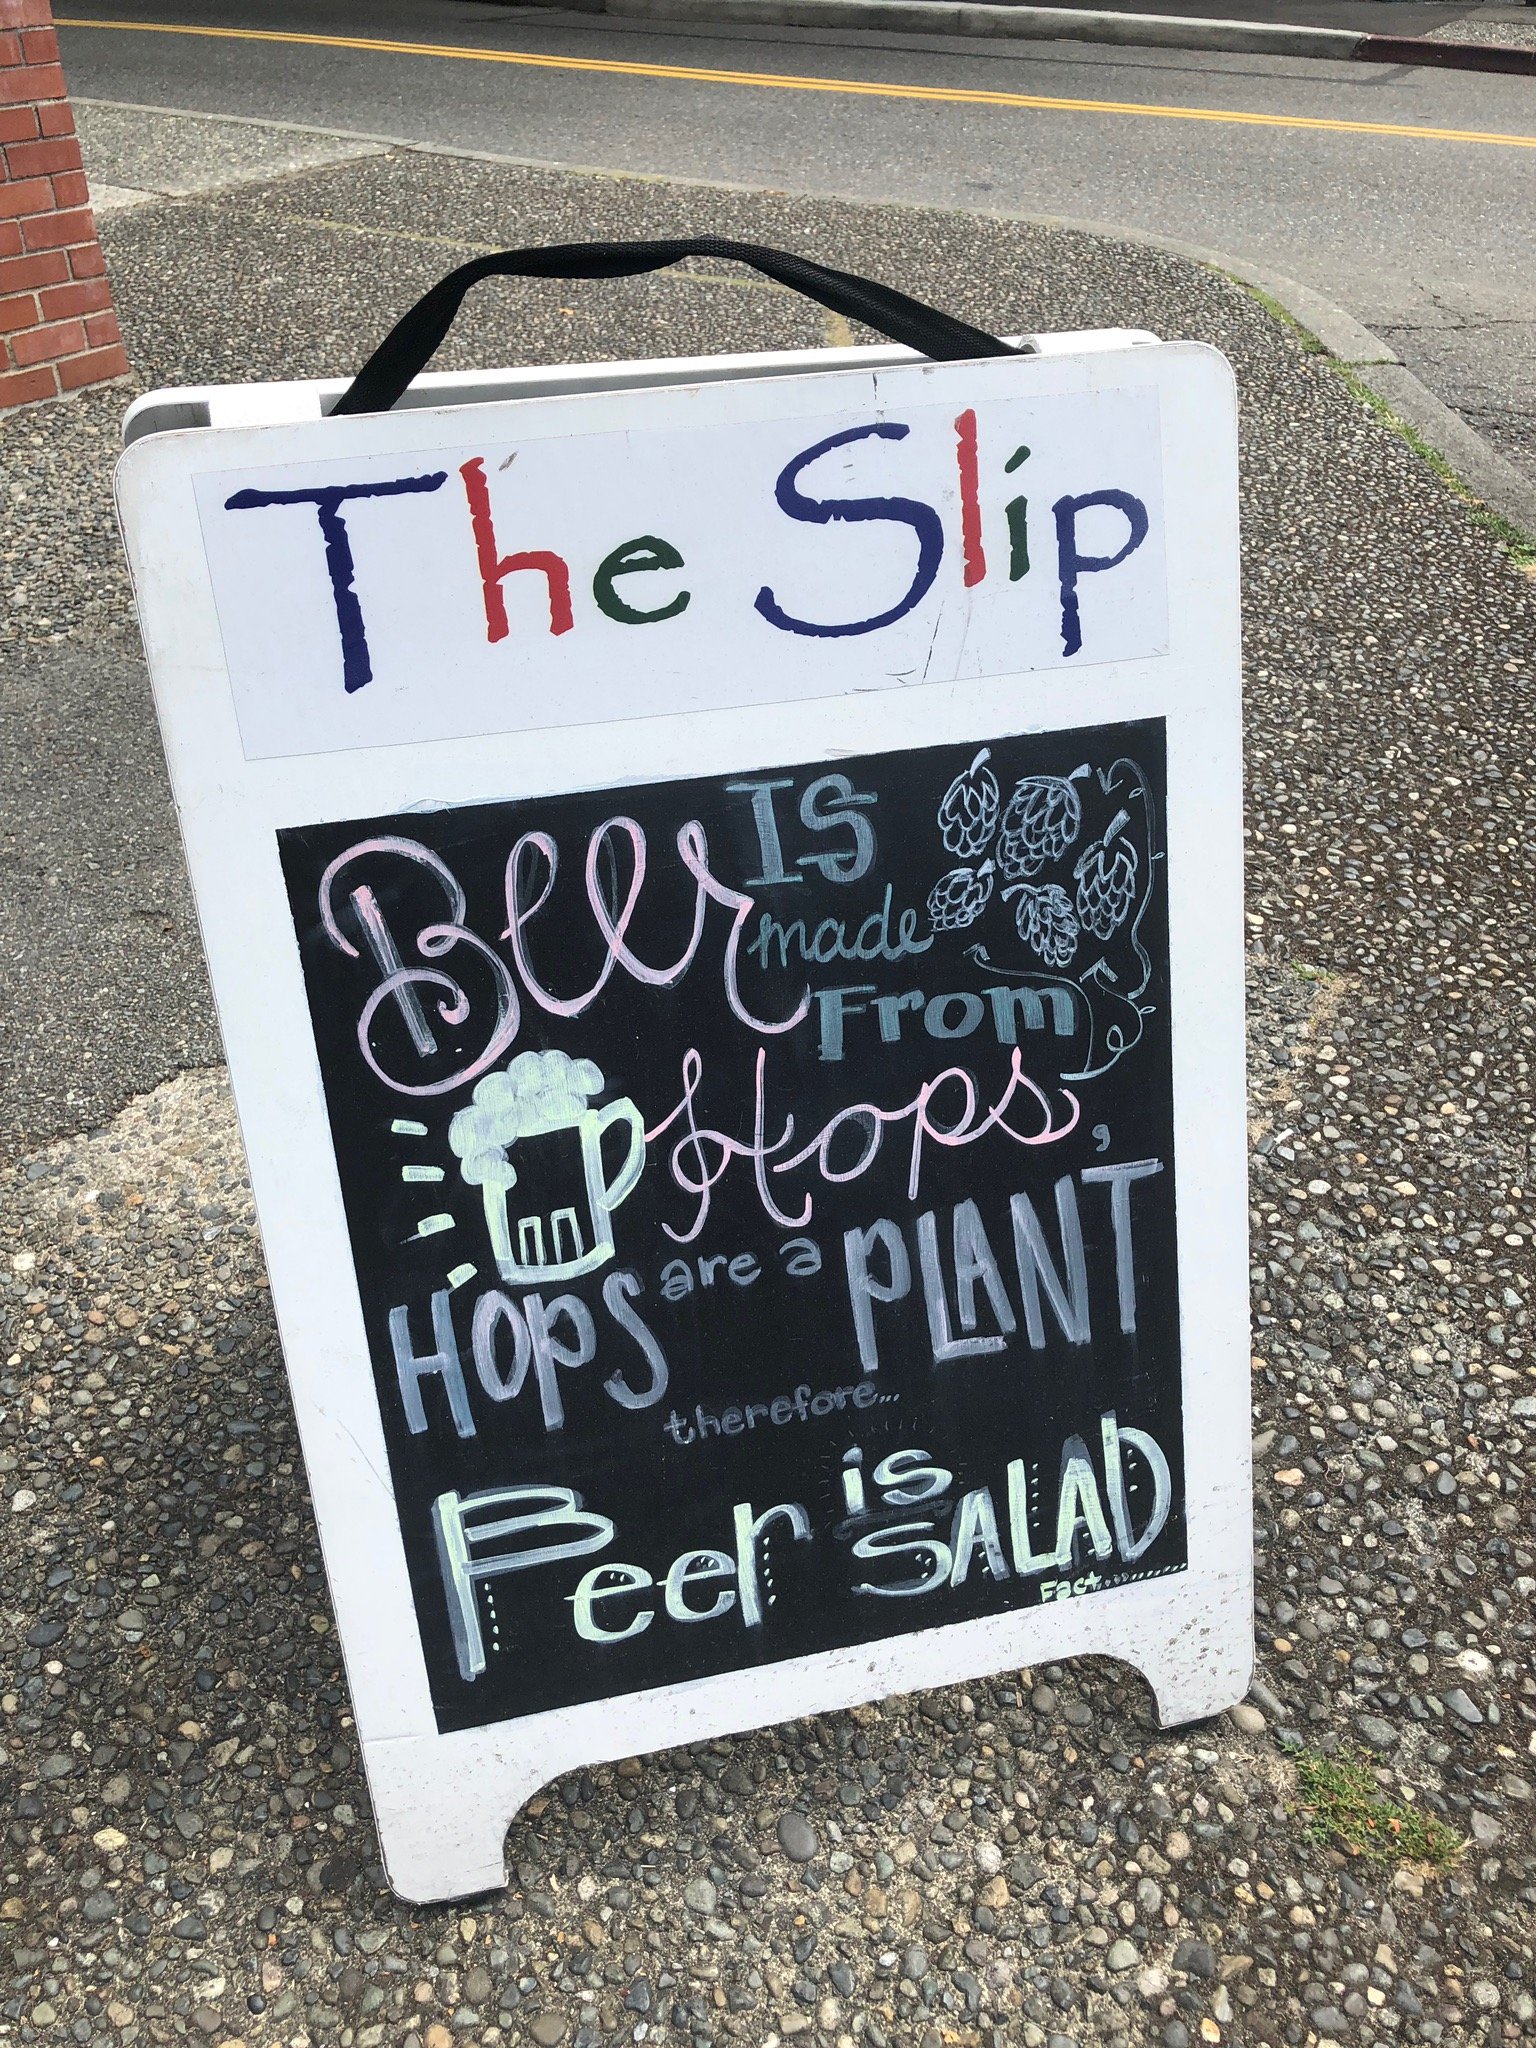 The Slip
Beer IS
made
From
Hops,
HOPS are a PLANT
therefore...
Beer is
SALAD
Fact...........